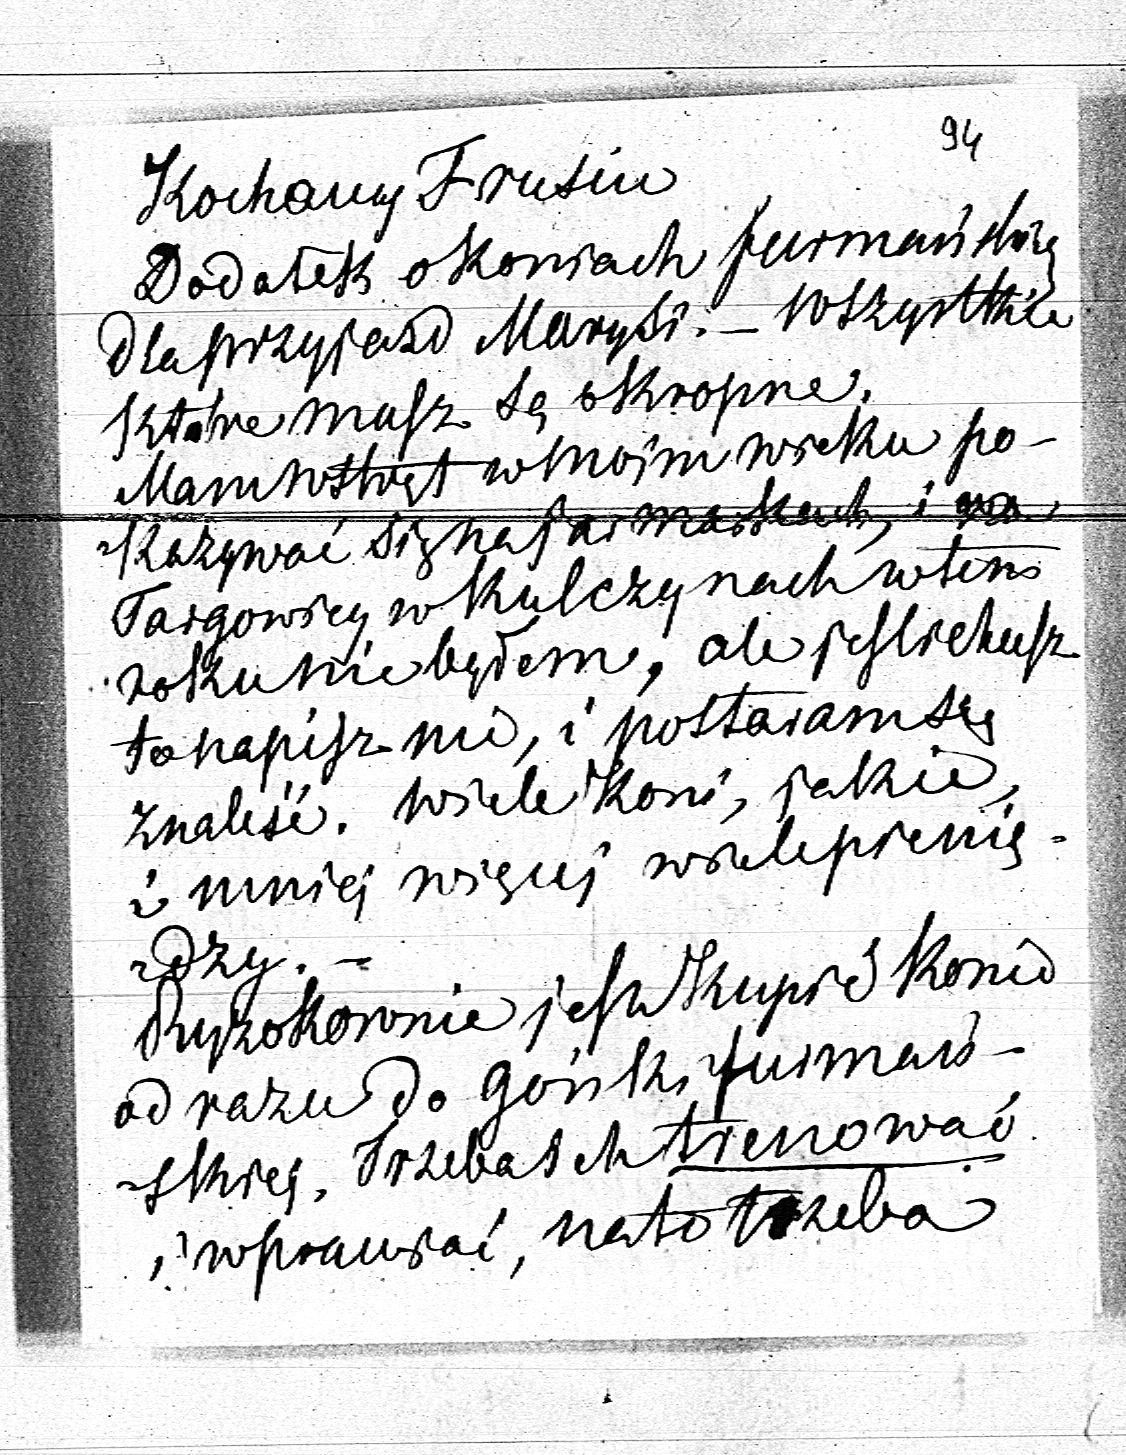 94
Kochany Frusiu
Dodatek o koniach furmańskię
dla przyjazd Marysi. — Wszystkie
które masz są okropne.
Mam wstręt w moim wieku po-
kazywać się na jarmarkach, i na
Targowicy w Kulczynach w tem
roku nie byłem, ale jesli chcesz
to napisz mi, i postaram się
znaleść. Wiele koni, jakie,
i mniej więcej wiele pienię-
dzy. —
Ryzokownie jest kupić konie
od razu do gońki furmań-
skiej. Trzeba ich trenować
i wprawiać, na to trzeba